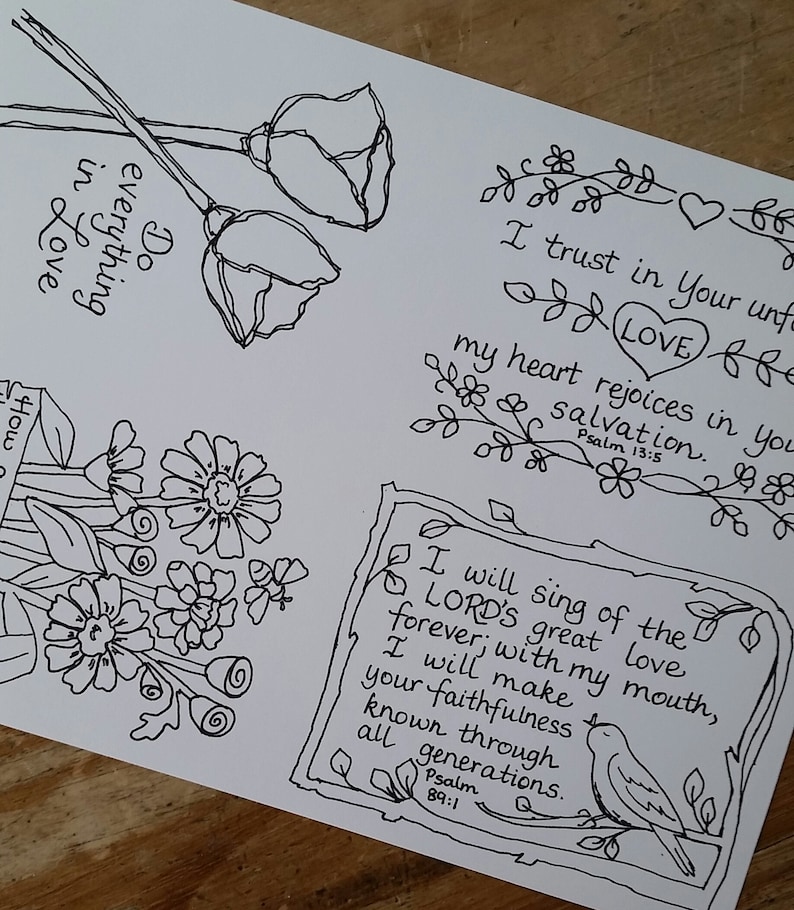 Do
everything
in
Love
I trust in Your
LOVE
my heart rejoices in
salvation.
Psalm 13:5
How
I will sing of the
LORD'S great love
forever; with my mouth,
I will make
your faithfulness
known through
all generations.
Psalm
89:1